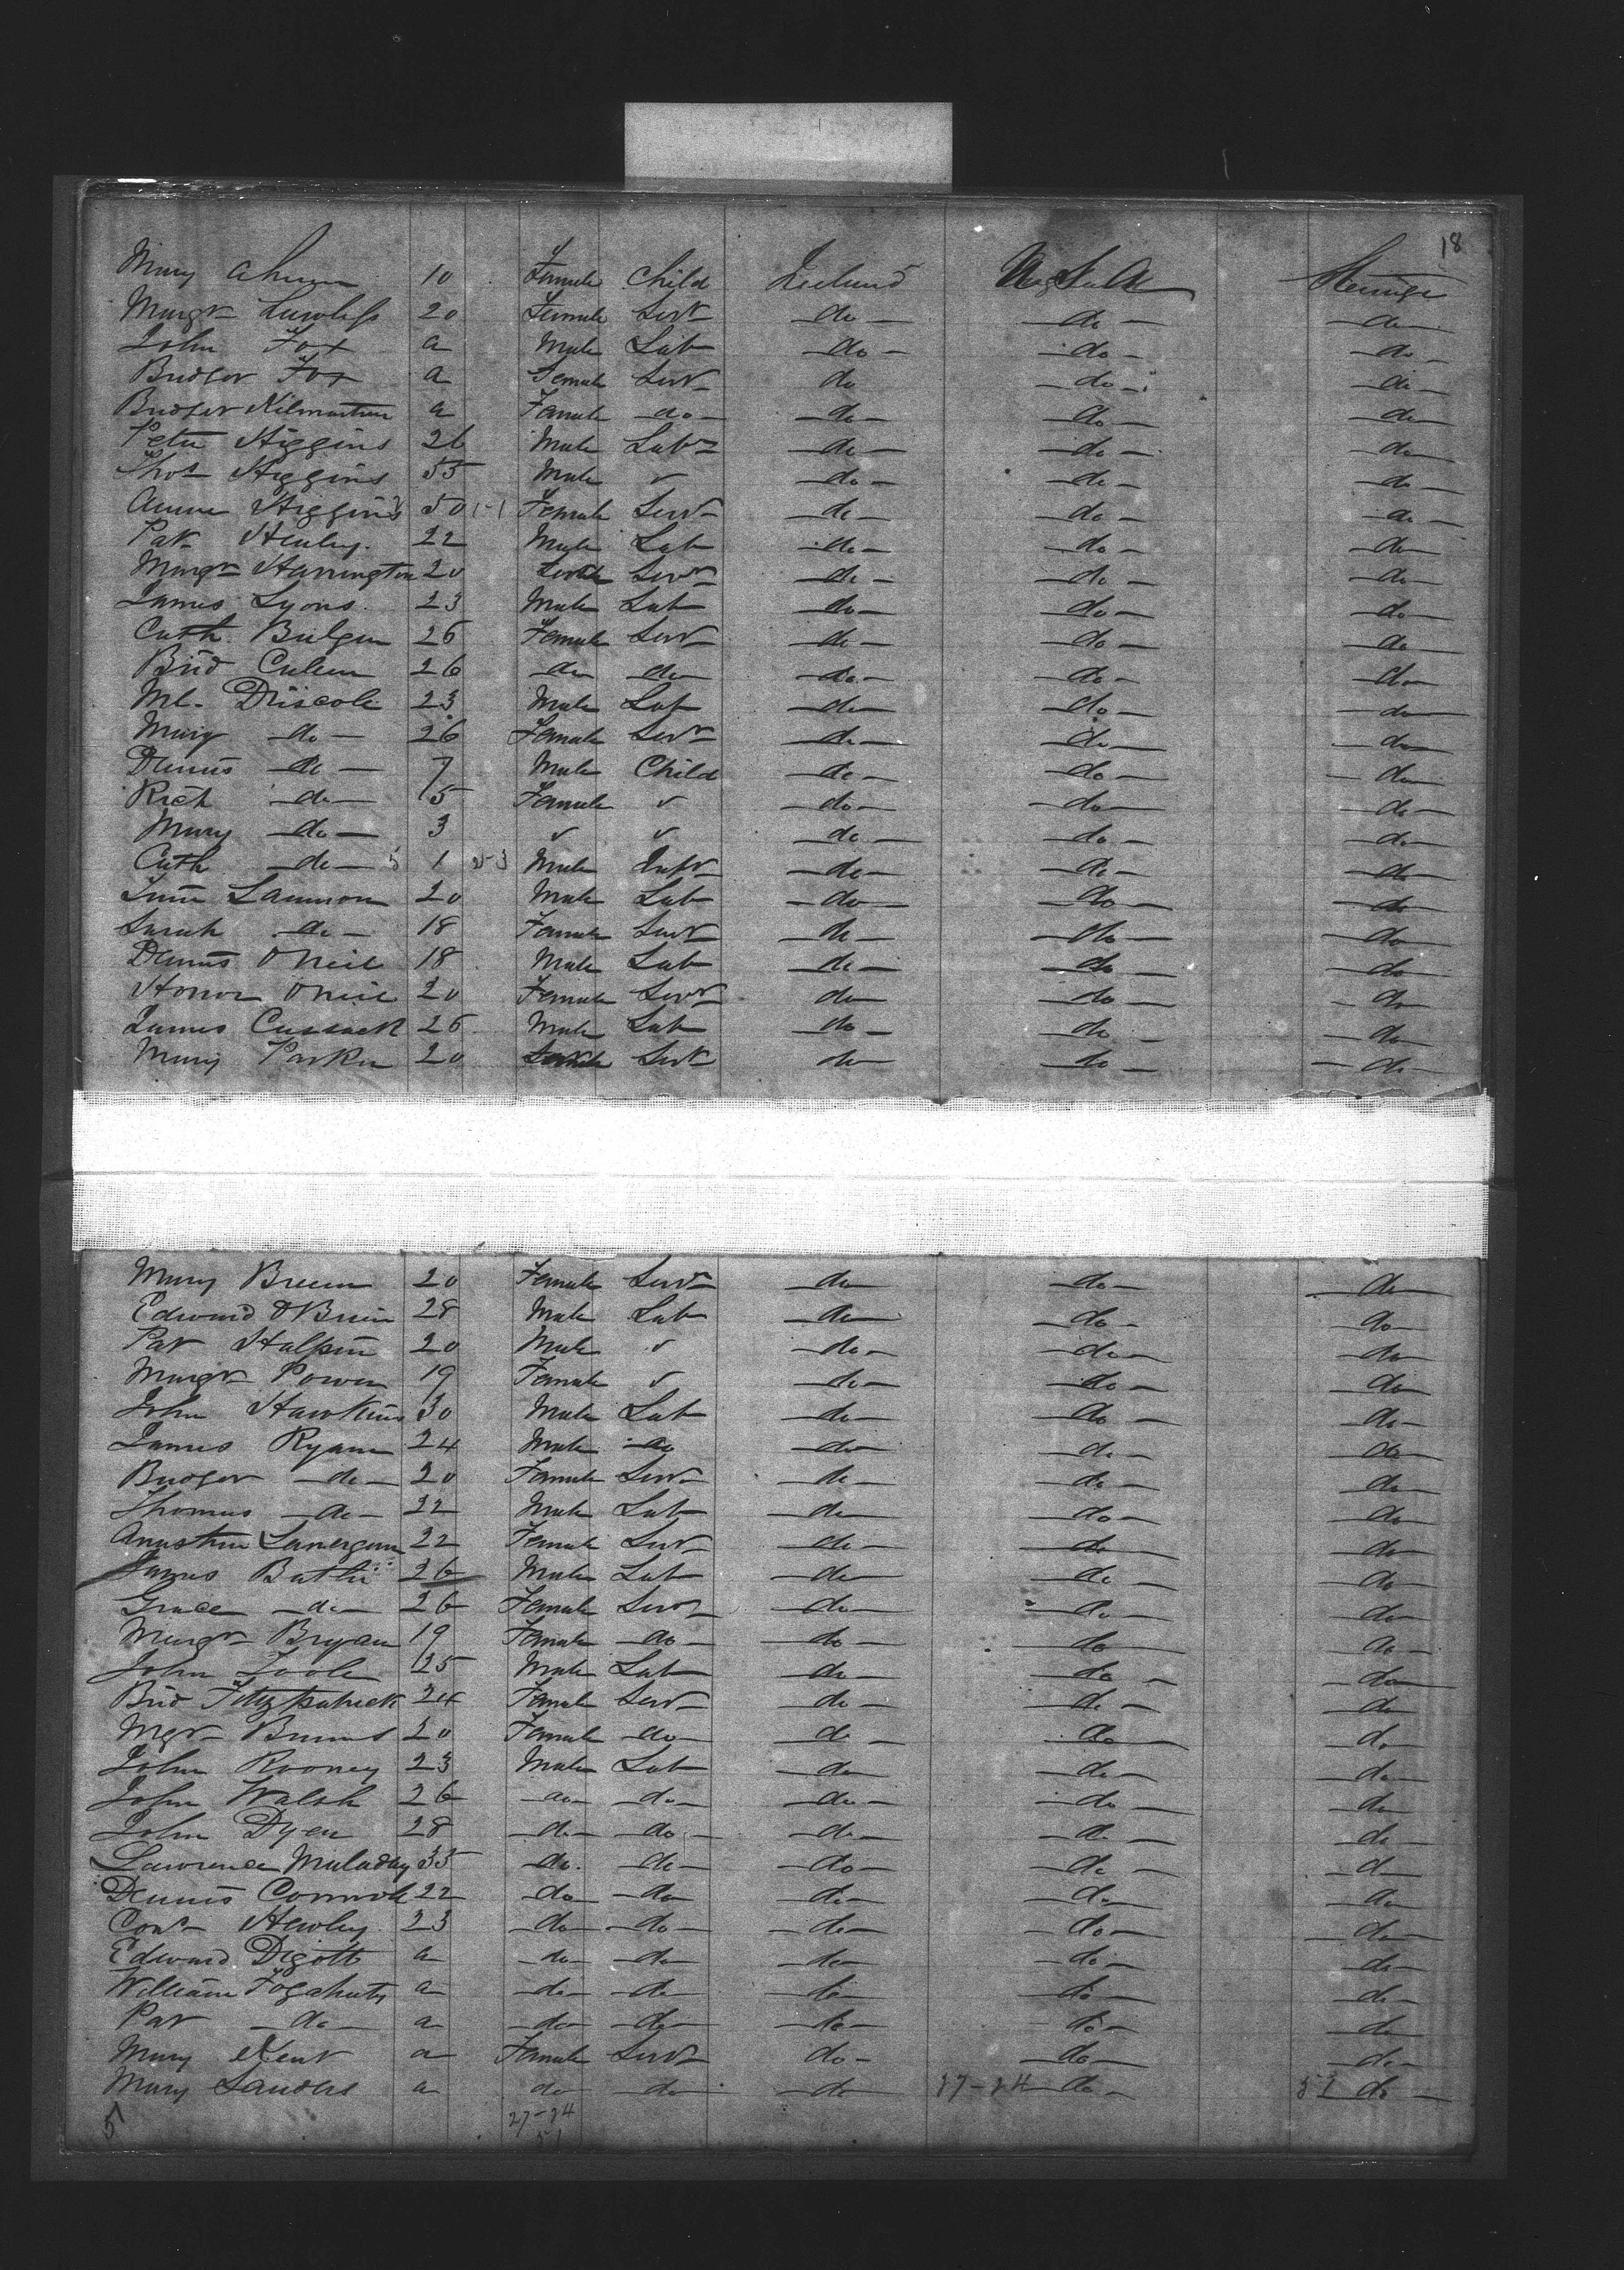 18
Mary Ahern 10 Female Child Ireland U S A Steerage
Margt Lawless 20 Female Servt do do do
John Fox a Male Lab do do do
Bridget Fox a Female Servt do do do
Bridget Kilmartin a Female do do do do
Peter Higgins 26 Male Labr do do do
Thos Higgins 55 Male " do do do
Anne Higgins 50 1-1 Female Servt do do do
Pat Henley 22 Male Lab do do do
Margt Harrington 20 Servt do do do
James Lyons 23 Male Lab do do do
Cath Bulger 26 Female Servt do do do
Brid Cullen 26 do do do do do
Ml. Driscole 23 Male Lab do do do
Mary do 26 Female Servt do do do
Dennis do 7 Male Child do do do
Rich do 5 Female " do do do
Mary do 3 " " do do do
Cath do 1 Male Inft do do do
20 Male Lab do do do
Sarah do 18 Female Servt do do do
Dennis O Neil 18 Male Lab do do do
Honor O Neil 20 Female Servt do do do
James Cussack 26 Male Lab do do do
Mary Parker 20 Servt do do do
Mary Breen 20 Female Servt do do do
Edward O Brien 28 Male Lab do do do
Pat Halpin 20 Male " do do do
Margt Power 19 Female " do do do
John Hawkins 30 Male Lab do do do
James Ryan 24 Male do do do do
Bridget do 20 Female Servt do do do
Thomas do 22 Male Lab do do do
Lanergan 22 Female Servt do do do
James Butler 26 Male Lab do do do
Grace do 26 Female Servt do do do
Margt Bryan 19 Female do do do do
John Toole 25 Male Lab do do do
Brid Fitzpatrick 24 Female Servt do do do
Mgt Burns 20 Female do do do do
John Rooney 23 Male Lab do do do
John Walsh 26 do do do do do
John Dyer 28 do do do do do
Lawrence Muladay 35 do do do do do
Dennis Connole 22 do do do do do
Conr Hewley 23 do do do do do
Edward Digott a do do do do do
William a do do do do do
Pat do a do do do do do
Mary Kent a Female Servt do do do
Mary Landers a do do do 27-24 do 51 do
5 27-24
51